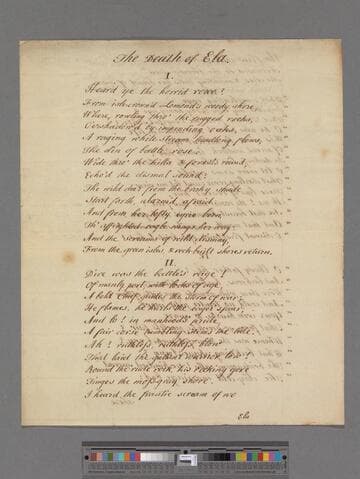 The Death of Ela.
I.
Heard ye the horrid roar!
From isle-crown'd Lomond's woody shore,
Where, rowling thro' the rugged rocks,
O'ershadow'd by impending oaks,
A raging white stream tumbling flows,
The din of battle rose:
Wide thro' the hills & forests round,
Echo'd the dismal sound:
The wild deer from the brushy shade
Start forth, alarm'd, afraid:
And from her lofty eyrie born
Th' affrighted eagle wings her way:
And the screams of wild dismay,
From the green isles & rock-built shores return.
II.
Dire was the battle's reign!
Of manly port, with looks of age,
A bold Chief guides the storm of war:
He flames, he hurls the eager spear:
And lo! in manhood's pride
A fair corse tumbling stems the tide:
Ah! ruthless, ruthless blow
That laid the warrior low!
Round the rude rock his reeking gore
Tinges the moss-gray shore:
I heard the frantic scream of woe
Ela